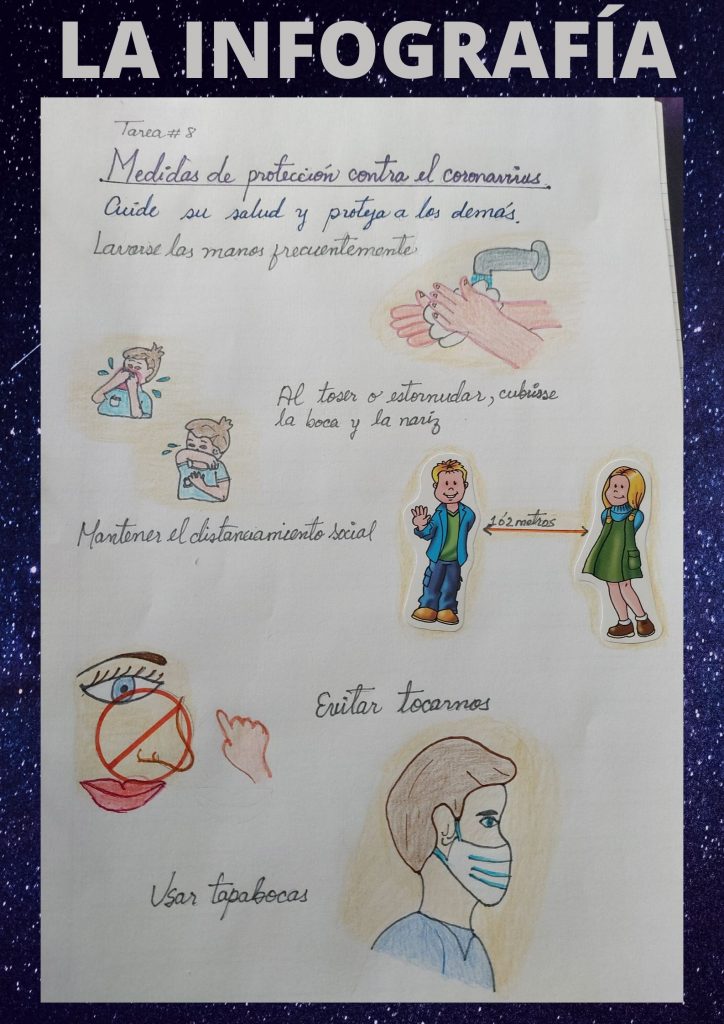 LA INFOGRAFÍA
Tarea # 8
Medidas de protección contra el coronavirus.
Cuide su salud y proteja a los demás.
Lavarse las manos frecuentemente
Al toser o estornudar, cubrirse
la boca y la nariz
1 ó 2 metros
Mantener el distanciamiento social
Evitar tocarnos
Usar tapabocas